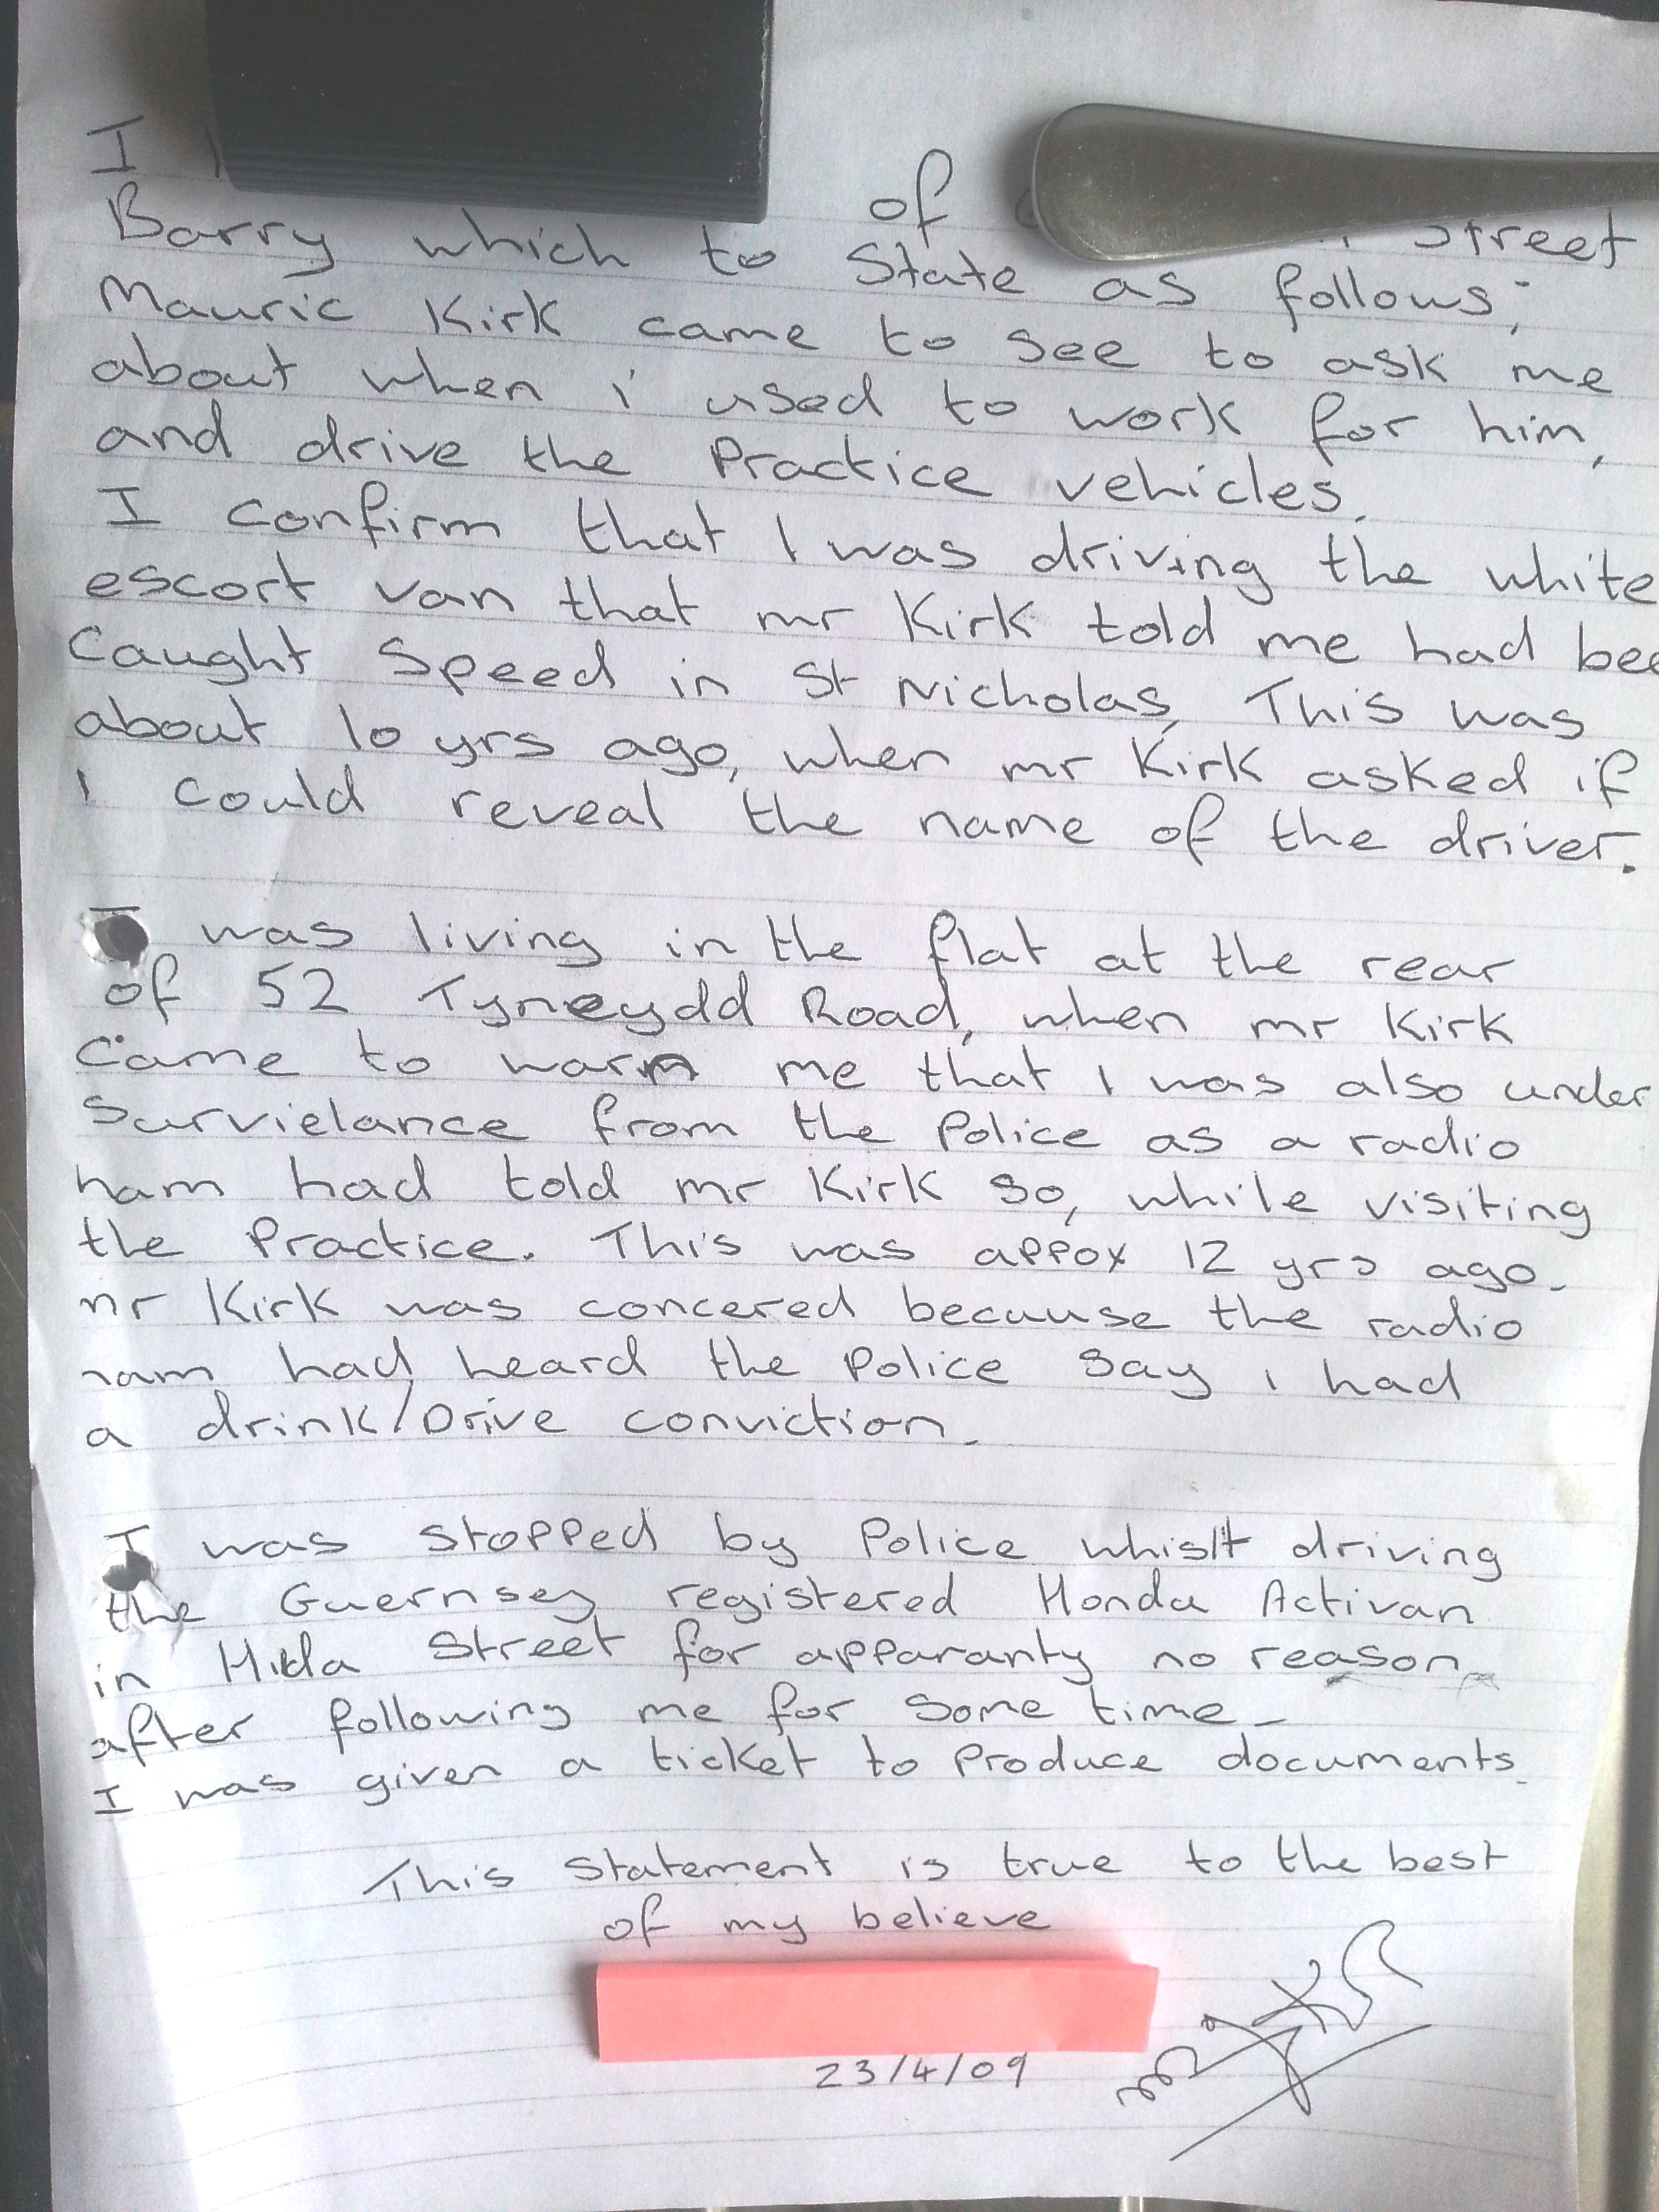 I
of Street
Barry which to State as follows;
Mauric Kirk came to see to ask me
about when i used to work for him,
and drive the Practice vehicles.
I confirm that I was driving the white
escort van that mr Kirk told me had bee
Caught Speed in St Nicholas, This was
about 10 yrs ago, when mr Kirk asked if
I could reveal the name of the driver.
I was living in the flat at the rear
of 52 Tyneydd Road, when mr Kirk
Came to warn me that I was also under
Survielance from the Police as a radio
ham had told mr Kirk so, while visiting
the Practice. This was appox 12 yrs ago.
mr Kirk was concered because the radio
ham had heard the Police Say i had
a drink/Drive conviction.
I was stopped by Police whislt driving
the Guernsey registered Honda Activan
in Hilda Street for apparanty no reason
after following me for Some time_
I was given a ticket to Produce documents.
This Statement is true to the best
of my believe
23/4/09